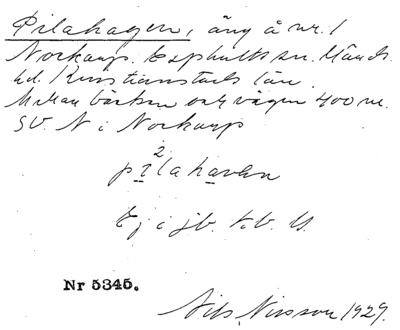 Pilahagen, äng å nr. 1
Norkarp. Esphults sn. Gärds
hd. Kristianstads län.
Mellan bäcken och vägen 400 m.
SV. N i Norkarp
2
pīlahaven
Ej i jb. k.b. U.
Nr 5345.
Nils Nilsson 1929.